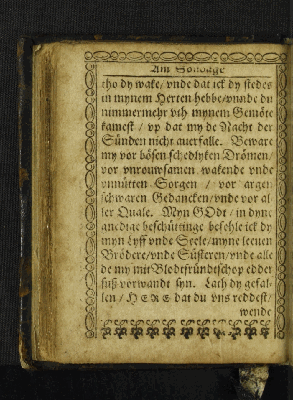 Am Sondage
tho dy wake/ vnde dat ick dy stedes
in mynem Herten hebbe/ vnnde du
nummermehr vth mynem Gemöte
kamest / vp dat my de Nacht der
Sünden nicht auerfalle. Beware
my vor bösen schedtyken Drömen/
vor vnrouwsamen wakende vnde
vnnütten Sorgen / vor argen
schwaren Gedancken/ vnde vor al
ler Quale. Myn GOdt / in dyne
gnedige beschüttinge befehle ick dy
myn Lyff vnde Seele/ myne leeuen
Brödere/ vnde Süsteren/ vnde alle
de my mit Blodtfründtschop edder
süß vorwandt syn. Lath dy gefal
len / HERE dat du vns reddest/
wende